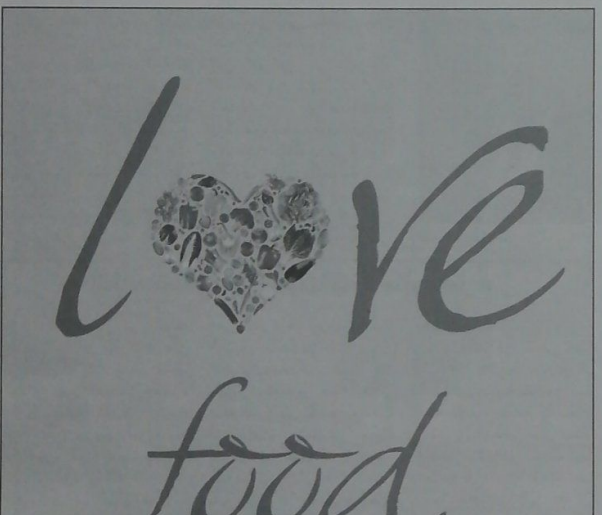 love
food